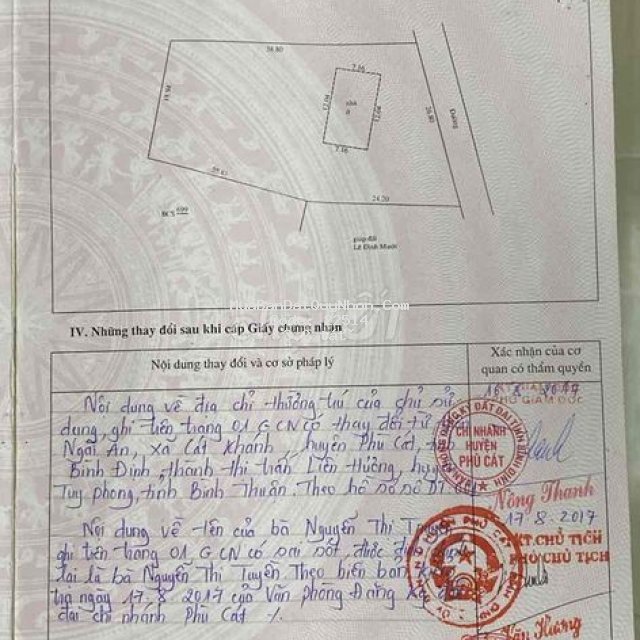 38.80
7.16
nhà
ở
7.16
26.80
Đường
24.20
BCS 699
giáp đất
Lê Đình Mười
MuaBanDatQuyNhon.Com
IV. Những thay đổi sau khi cấp Giấy chứng nhận
Nội dung thay đổi và cơ sở pháp lý
Xác nhận của cơ
quan có thẩm quyền
Nội dung về địa chỉ thường trú của chủ sử
dụng, ghi trên trang 01 GCN có thay đổi từ
Ngãi An, xã Cát Khánh, huyện Phù Cát, tỉnh
Bình Định, thành thị trấn Liên Hương, huyện
Tuy phong, tỉnh Bình Thuận. Theo hồ sơ số
GIÁM ĐỐC
CHI NHÁNH
HUYỆN
PHÙ CÁT
Nông Thanh
Nội dung về tên của bà Nguyễn Thị
ghi trên trang 01 GCN có sai sót, được
lại là bà Nguyễn Thị Tuyên Theo biên bản
tra ngày 17.8.2017 của Văn phòng Đăng ký
đai chi nhánh Phù Cát ./.
17-8-2017
KT.CHỦ TỊCH
PHÓ CHỦ TỊCH